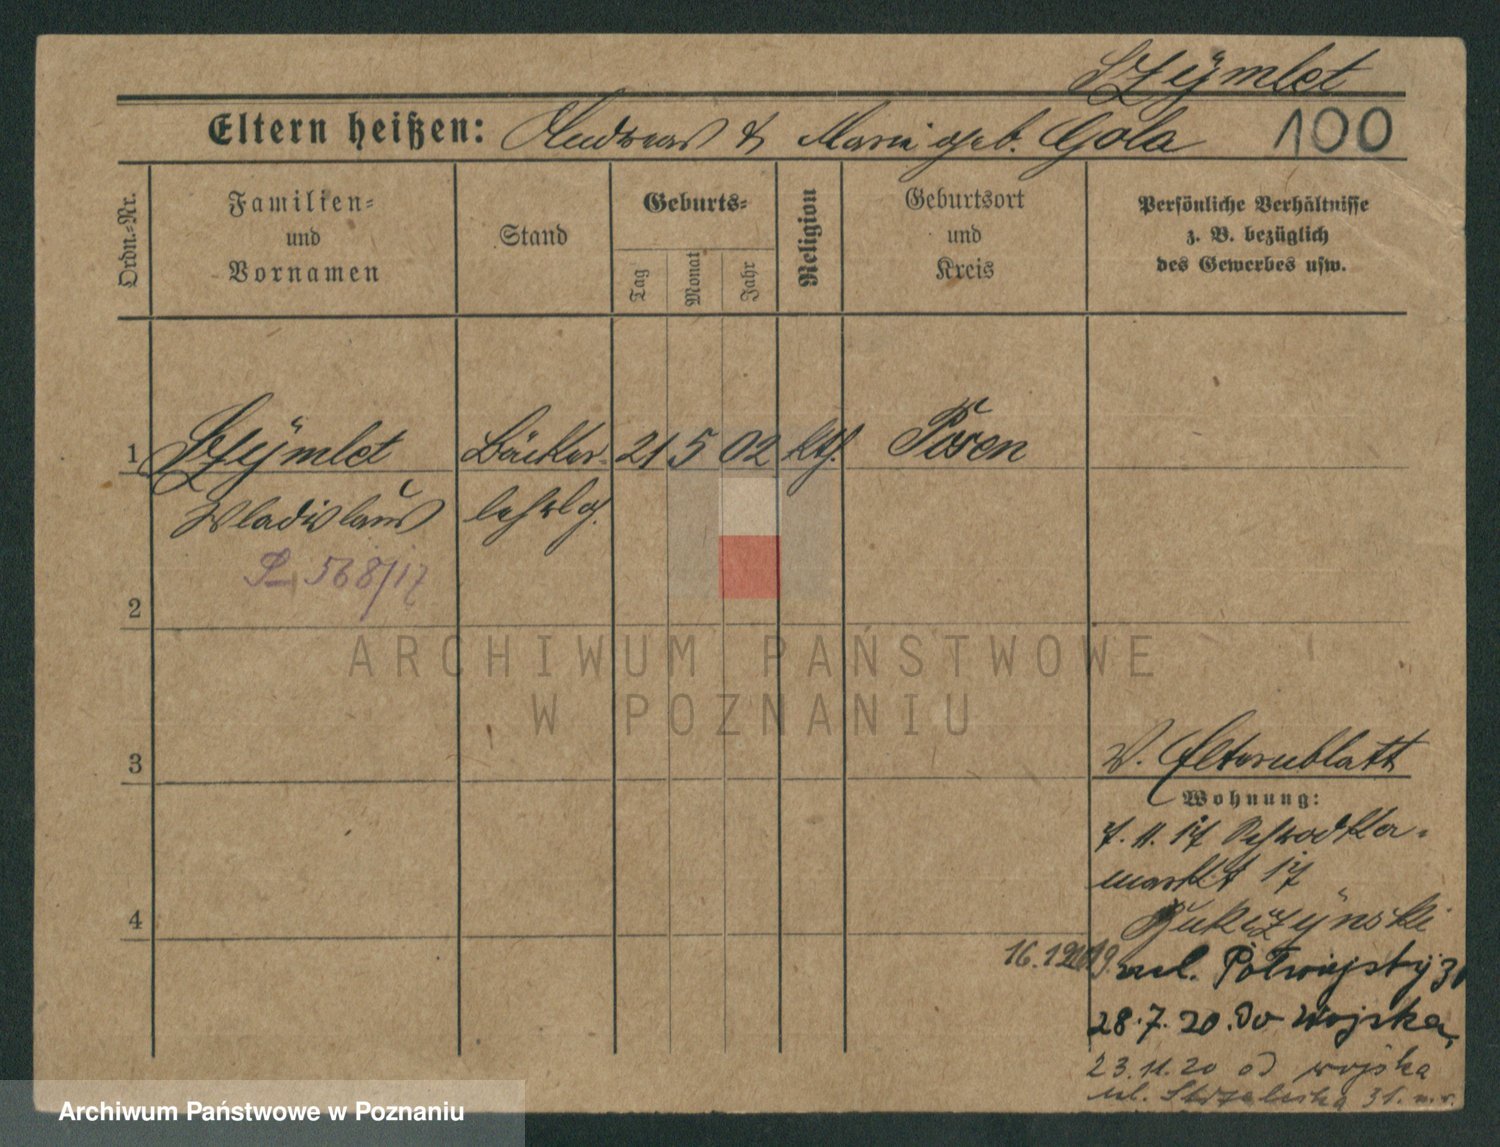 Szÿmlet
Eltern heißen: Andreas & Marie geb. Gola 100
Ordn.-Nr.
Familien-
und
Vornamen
Stand
Geburts-
Tag
Monat
Jahr
Religion
Geburtsort
und
Kreis
Persönliche Verhältnisse
z. B. bezüglich
des Gewerbes usw.
1 Szÿmlet Bäcker- 21 5 02 kth. Posen
Wladislaus lehrlg.
568/17
2
ARCHIWUM PAŃSTWOWE
W POZNANIU
3
V. Elternblatt
Wohnung:
7. 11. 17
markt 17
4
16.12.19. ul. Półwiejska 31
28.7.20. Do wojska
23.11.20 od wojska
ul. Strzelecka 31. m.
Archiwum Państwowe w Poznaniu